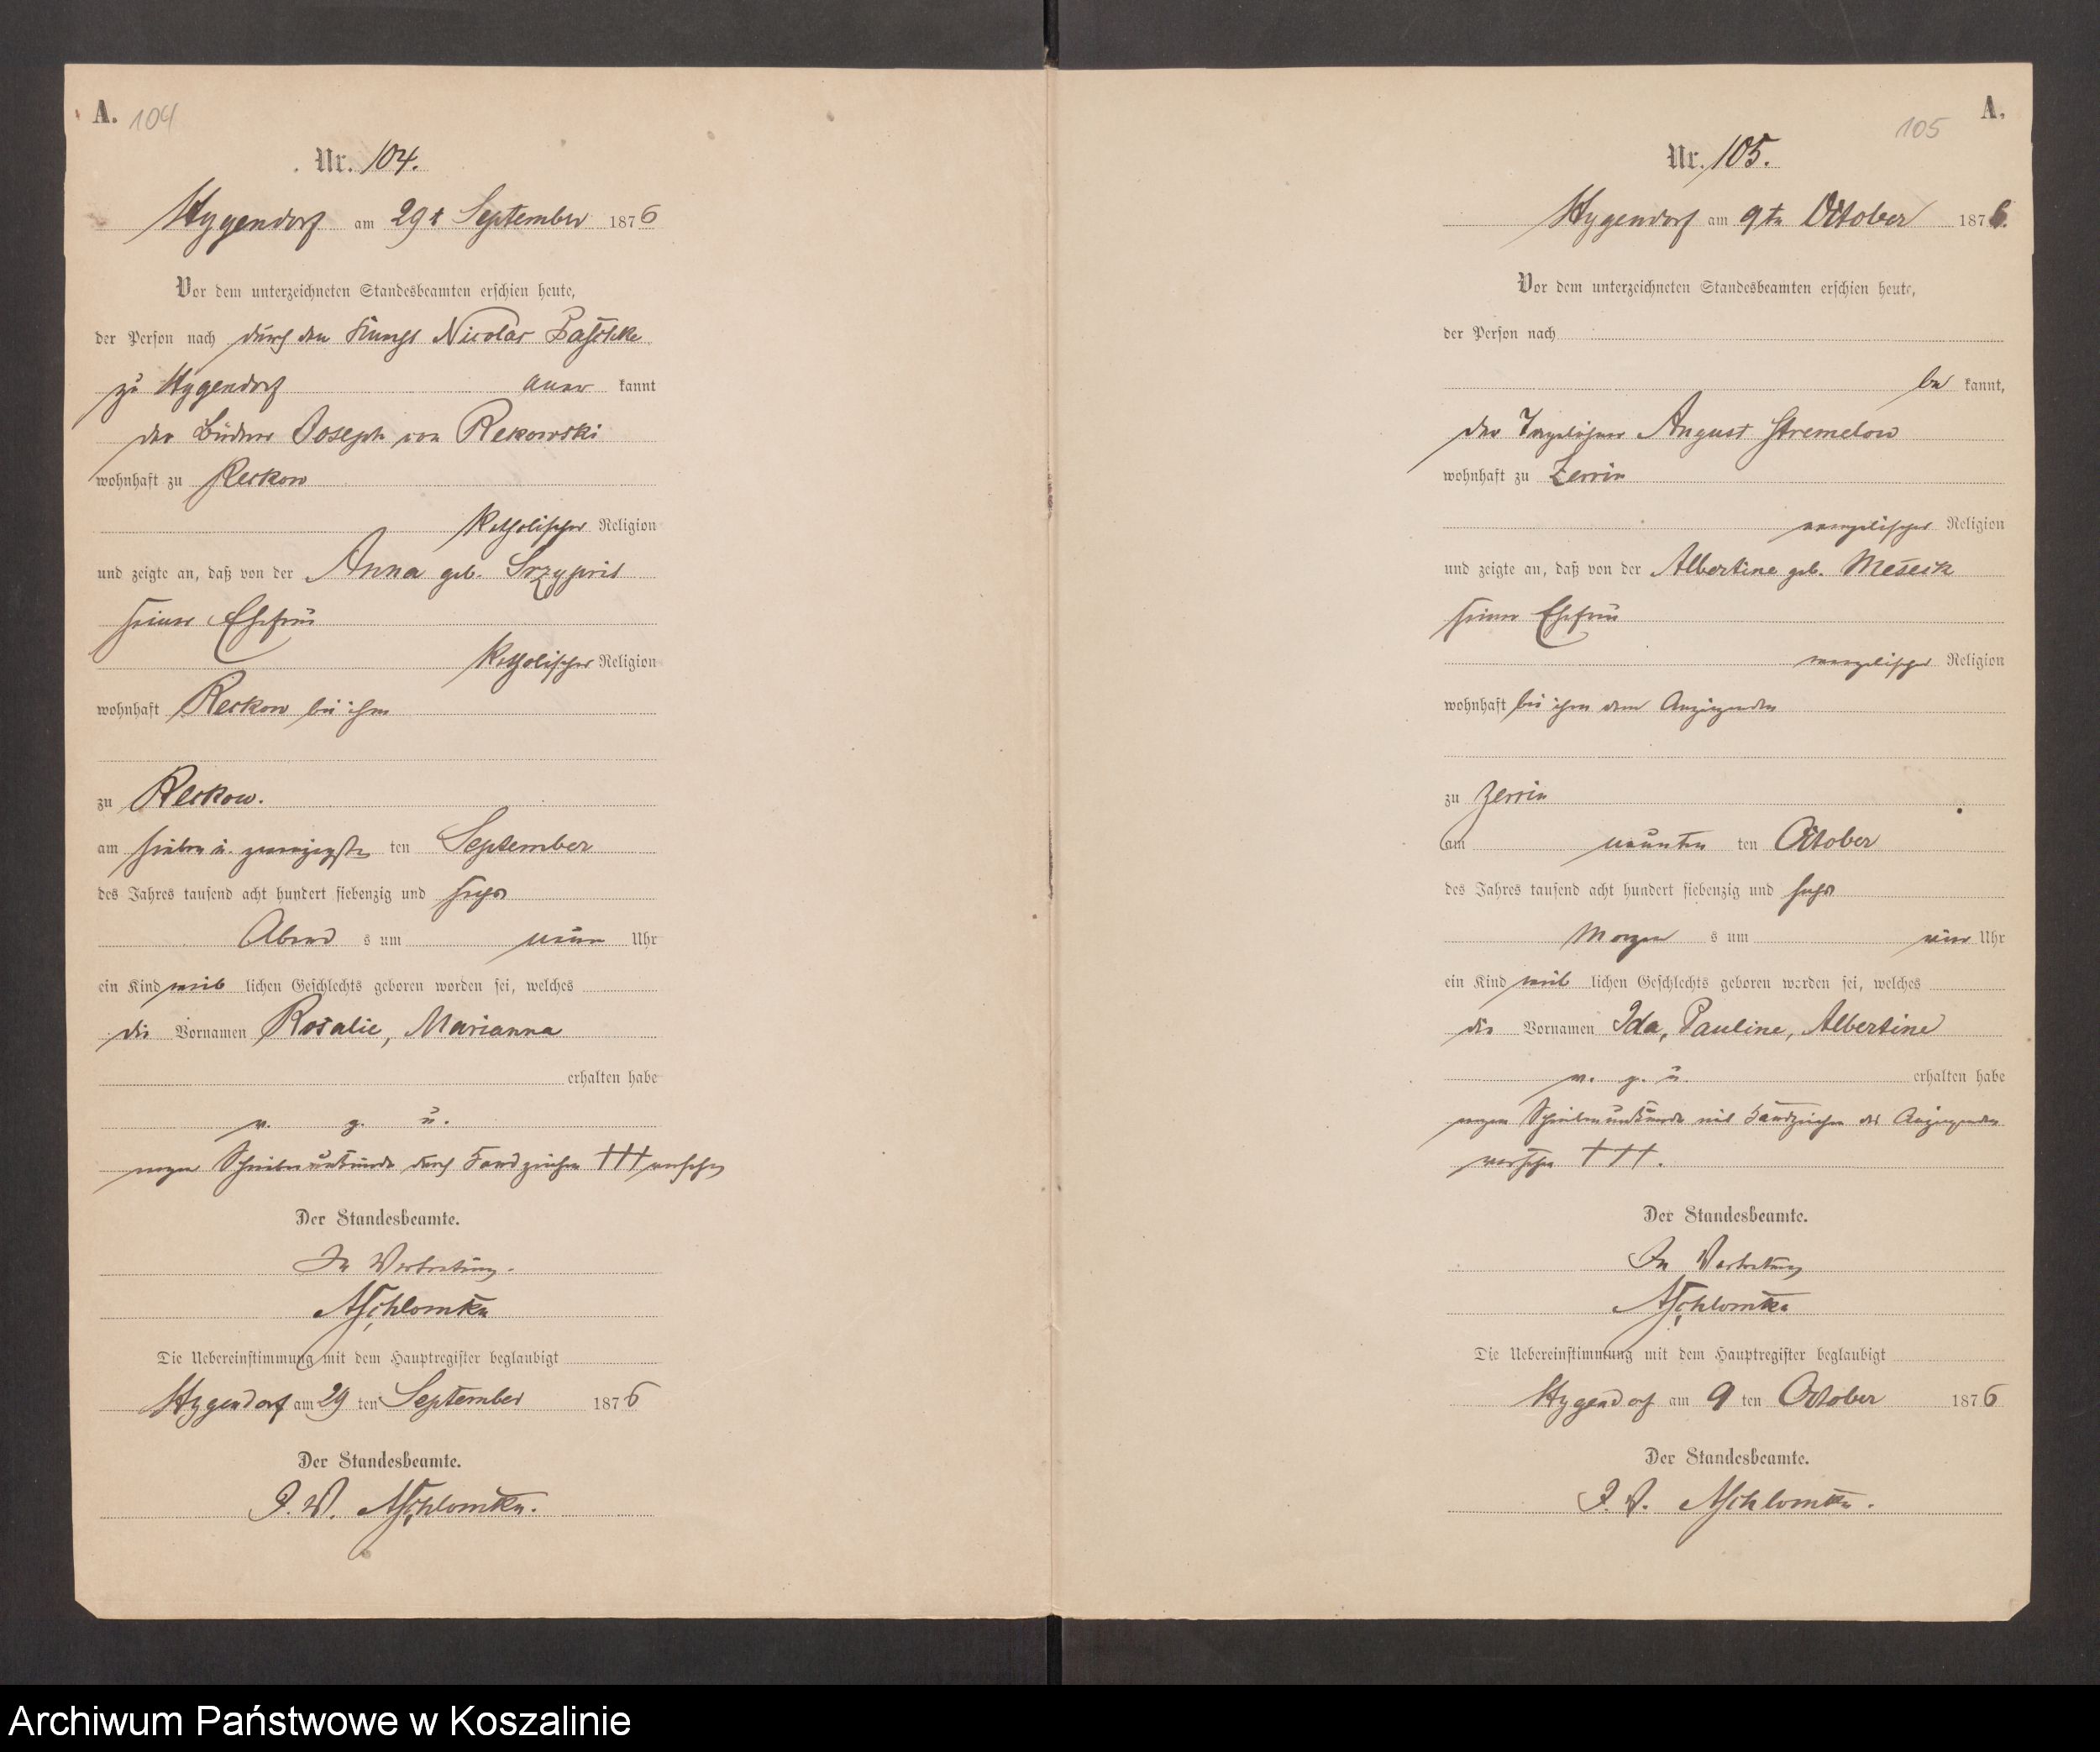 A. 104
Nr. 104.
Hygendorf am 29t September 1876
Vor dem unterzeichneten Standesbeamten erschien heute,
der Person nach durch den Nicolas
zu Hygendorf aner kannt
der Büdner Joseph von Rekowski
wohnhaft zu Reckow
Katholischer Religion
und zeigte an, daß von der Anna geb.
seiner Ehefrau
Katholischer Religion
wohnhaft Reckow bei ihm
zu Reckow.
am sieben u. zwanzigsten ten September
des Jahres tausend acht hundert siebenzig und sechs
Abend s um neun Uhr
ein Kind weib lichen Geschlechts geboren worden sei, welches
die Vornamen Rosalie, Marianna
erhalten habe
v. g. u.
wegen Schreibensunkunde durch Handzeichen +++ versehen
Der Standesbeamte.
In Vertretung.
ASchlomka
Die Uebereinstimmung mit dem Hauptregister beglaubigt
Hygendorf am 29 ten September 1876
Der Standesbeamte.
I. V. ASchlomka.
A.
105
Nr. 105.
Hygendorf am 9tn October 1876.
Vor dem unterzeichneten Standesbeamten erschien heute,
der Person nach
be kannt,
der Tagelöhner August Stremelow
wohnhaft zu Zerrin
evangelischer Religion
und zeigte an, daß von der Albertine geb.
seiner Ehefrau
evangelischer Religion
wohnhaft bei ihm dem Anzeigenden
zu Zerrin
am neunten ten October
des Jahres tausend acht hundert siebenzig und sechs
Morgen s um Uhr
ein Kind weib lichen Geschlechts geboren worden sei, welches
die Vornamen Ida, Pauline, Albertine
erhalten habe
v. g. u.
wegen Schreibensunkunde mit Handzeichen des Anzeigenden
versehen +++.
Der Standesbeamte.
In Vertretung
ASchlomka
Die Uebereinstimmung mit dem Hauptregister beglaubigt
Hygendorf am 9 ten October 1876
Der Standesbeamte.
I. V. ASchlomka.
Archiwum Państwowe w Koszalinie